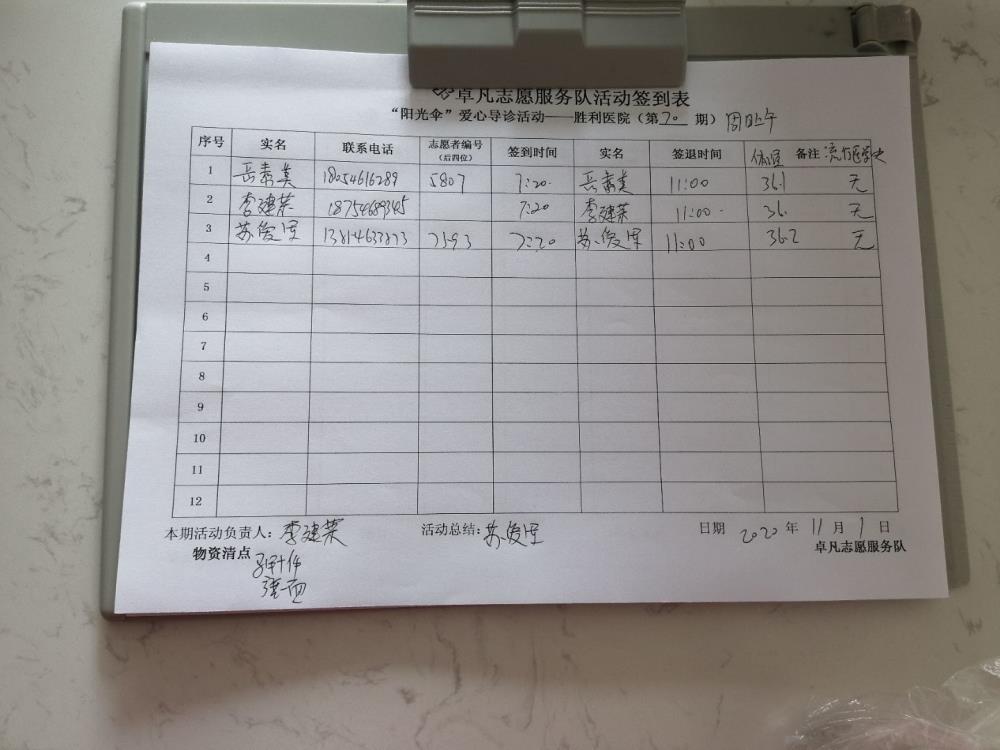 卓凡志愿服务队活动签到表
“阳光伞”爱心导诊活动——胜利医院（第20期）周日上午
序号 实名 联系电话 志愿者编号（后四位） 签到时间 实名 签退时间 体温 备注 流行病学史
1 岳素美 18054616289 5807 7:20 岳素美 11:00 36.1 无
2 李建荣 18754689345 7:20 李建荣 11:00 36. 无
3 苏俊 7593 7:20 苏俊 11:00 36.2 无
4
5
6
7
8
9
10
11
12
本期活动负责人：李建荣 活动总结：苏俊 日期 2020年11月1日
物资清点 卓凡志愿服务队